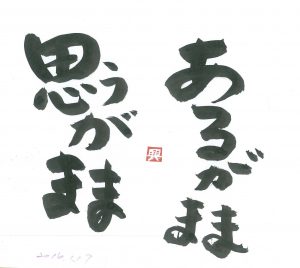 あるがまま
思うがまま
2016.1.17